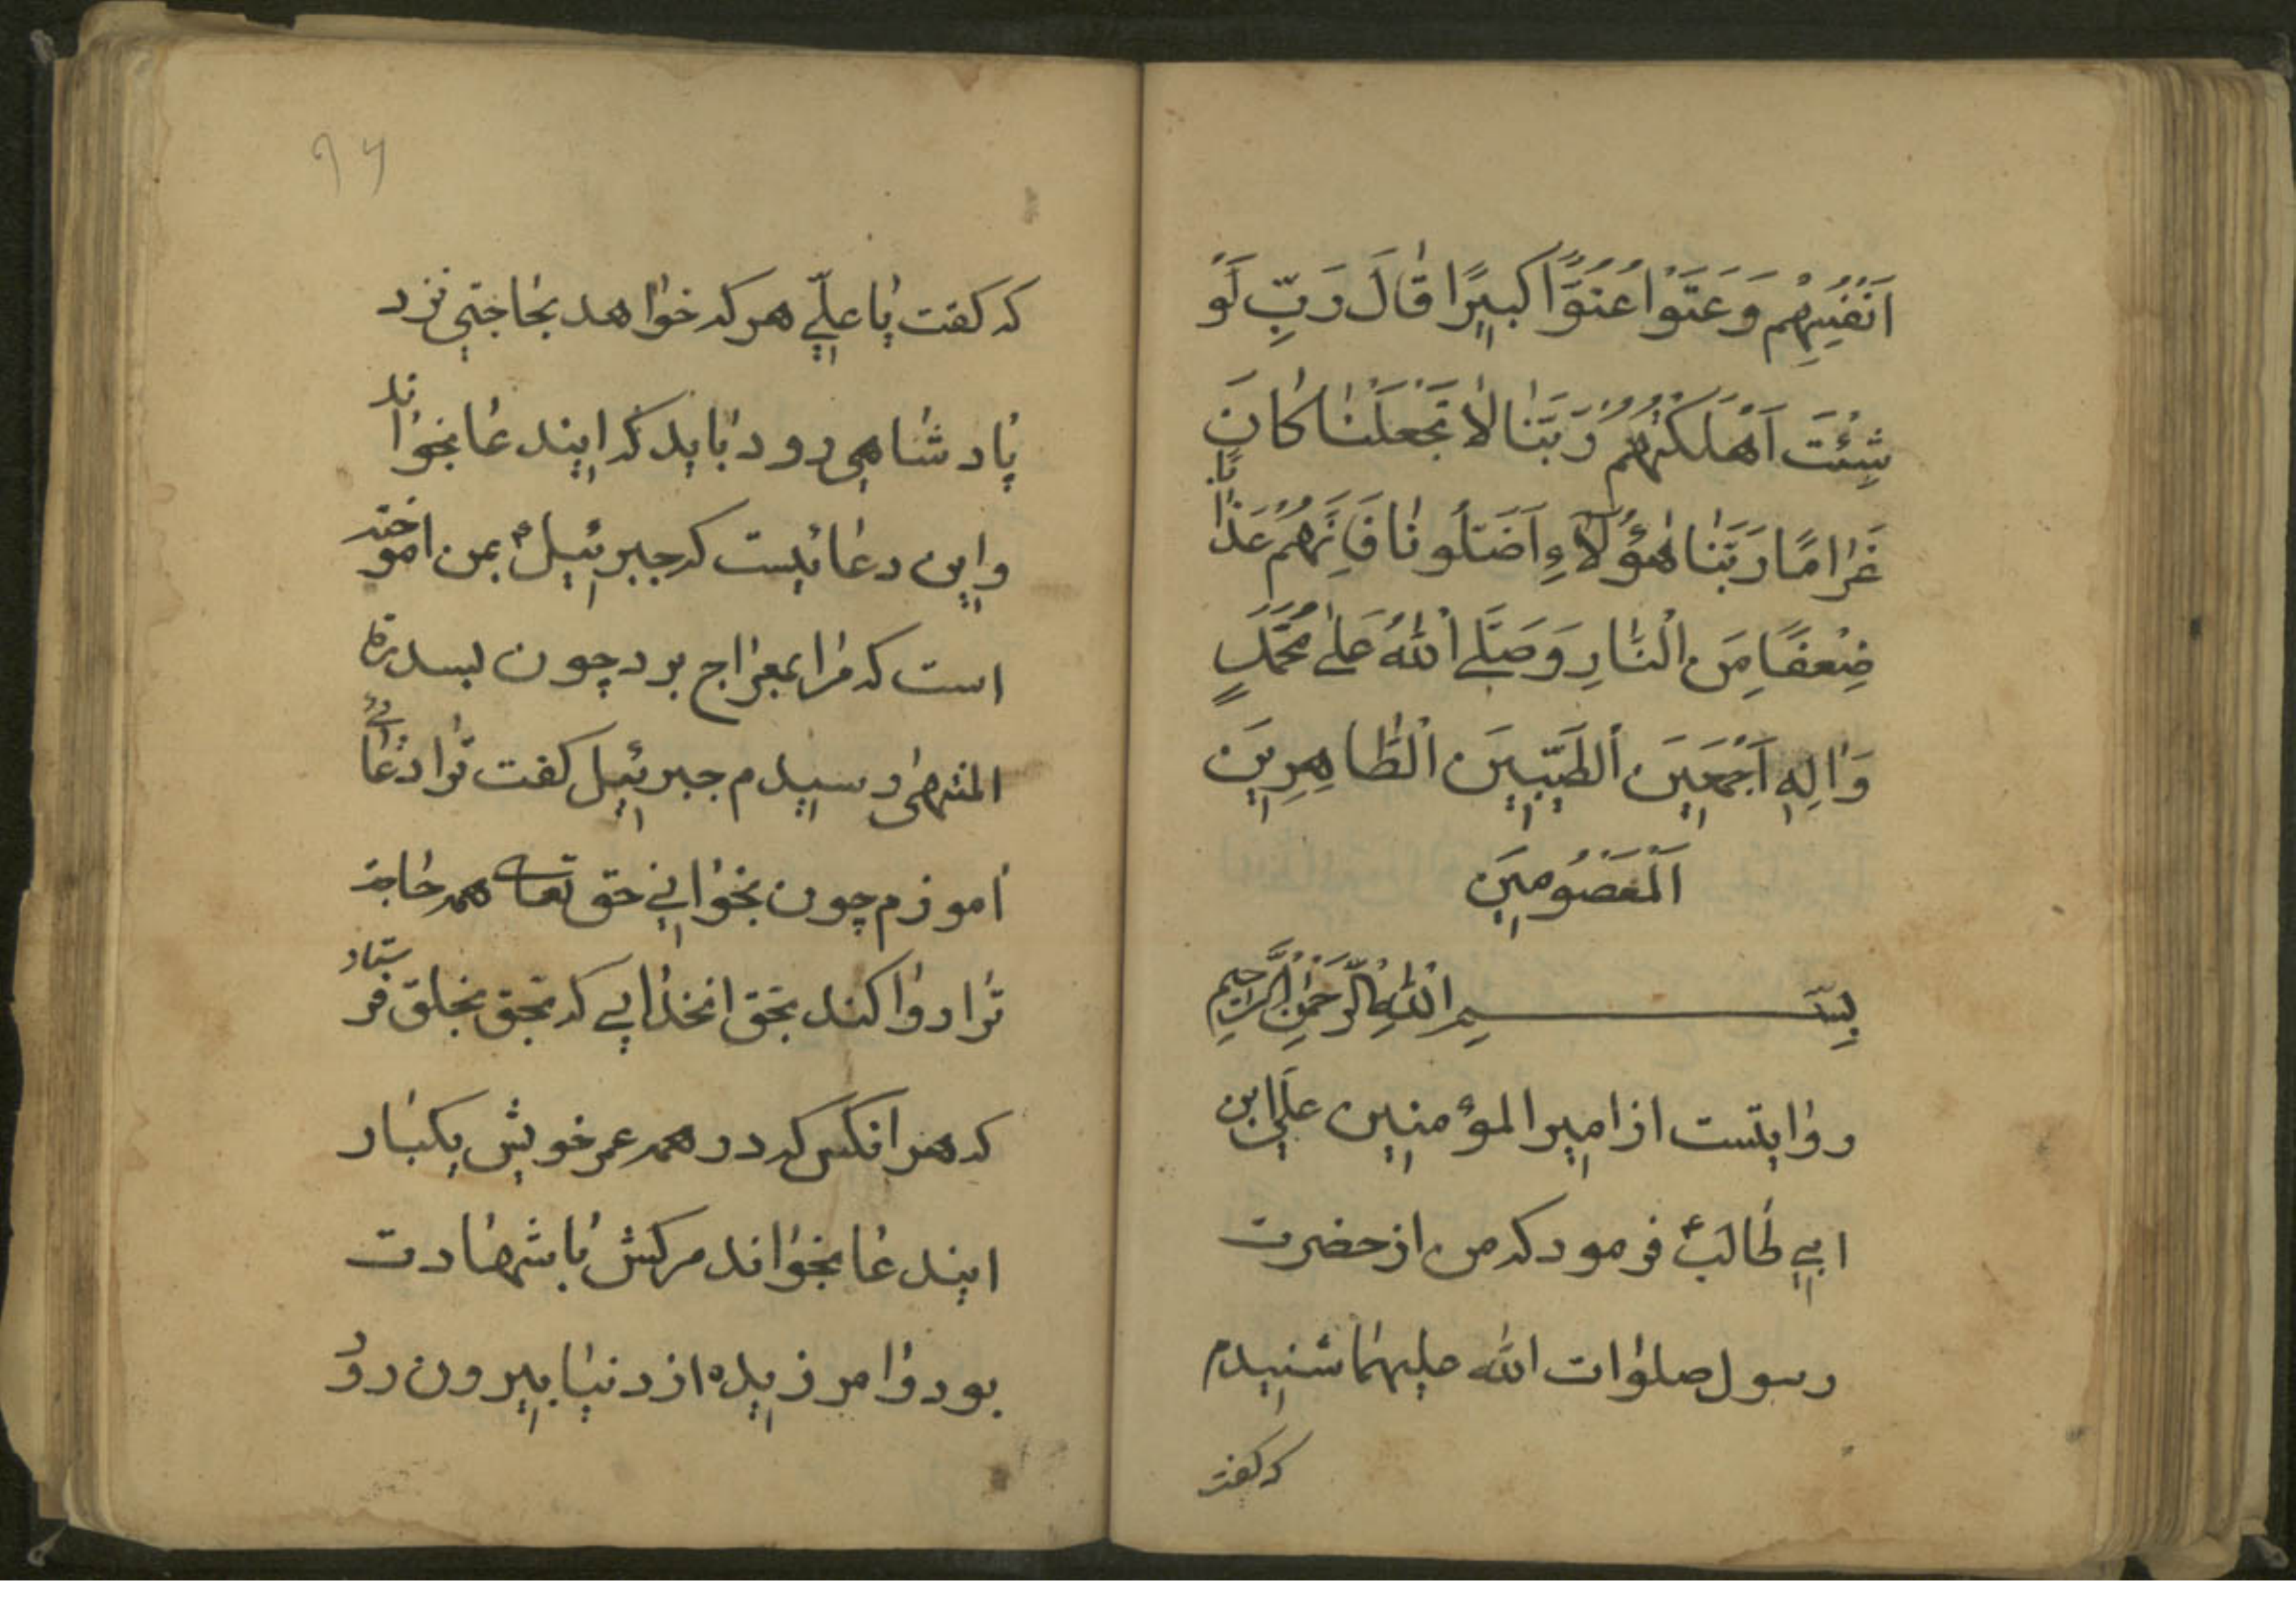 اَنْفُسِهِمْ وَعَتَوْا عُتُوًّا كَبِيرًا قَالَ رَبِّ لَوْ
شِئْتَ اَهْلَكْتَهُمْ رَبَّنَا لَا تَجْعَلْنَا كَانَ
غَرَامًا رَبَّنَا هٰؤُلَاءِ اَضَلُّونَا فَاٰتِهِمْ عَذَابًا
ضِعْفًا مِنَ النَّارِ وَصَلَّى اللهُ عَلٰى مُحَمَّدٍ
وَاٰلِهِ اَجْمَعِينَ الطَّيِّبِينَ الطَّاهِرِينَ
اَلْمَعْصُومِينَ
بِسْمِ اللهِ الرَّحْمٰنِ الرَّحِيمِ
روایتست از امیرالمؤمنین علی ابن
ابی طالب ع فرمود که من از حضرت
رسول صلوات الله علیهما شنیدم
که گفت
۹۶
که کفت یا علی هر که خواهد بحاجتی نزد
پادشاهی رود باید که ایندعا بخواند
واین دعائیست که جبرئیل ع بمن اموخته
است که مرا بمعراج برد چون بسدرة
المنتهی رسیدم جبرئیل کفت ترا دعائی
اموزم چون بخوانی حق تعالی همه حاجة
ترا روا کند بحق انخدایی که بحق بخلق فرستاد
که هر انکس که در همه عمر خویش یکبار
ایندعا بخواند مرکش با شهادت
بود و امرزیده از دنیا بیرون رود